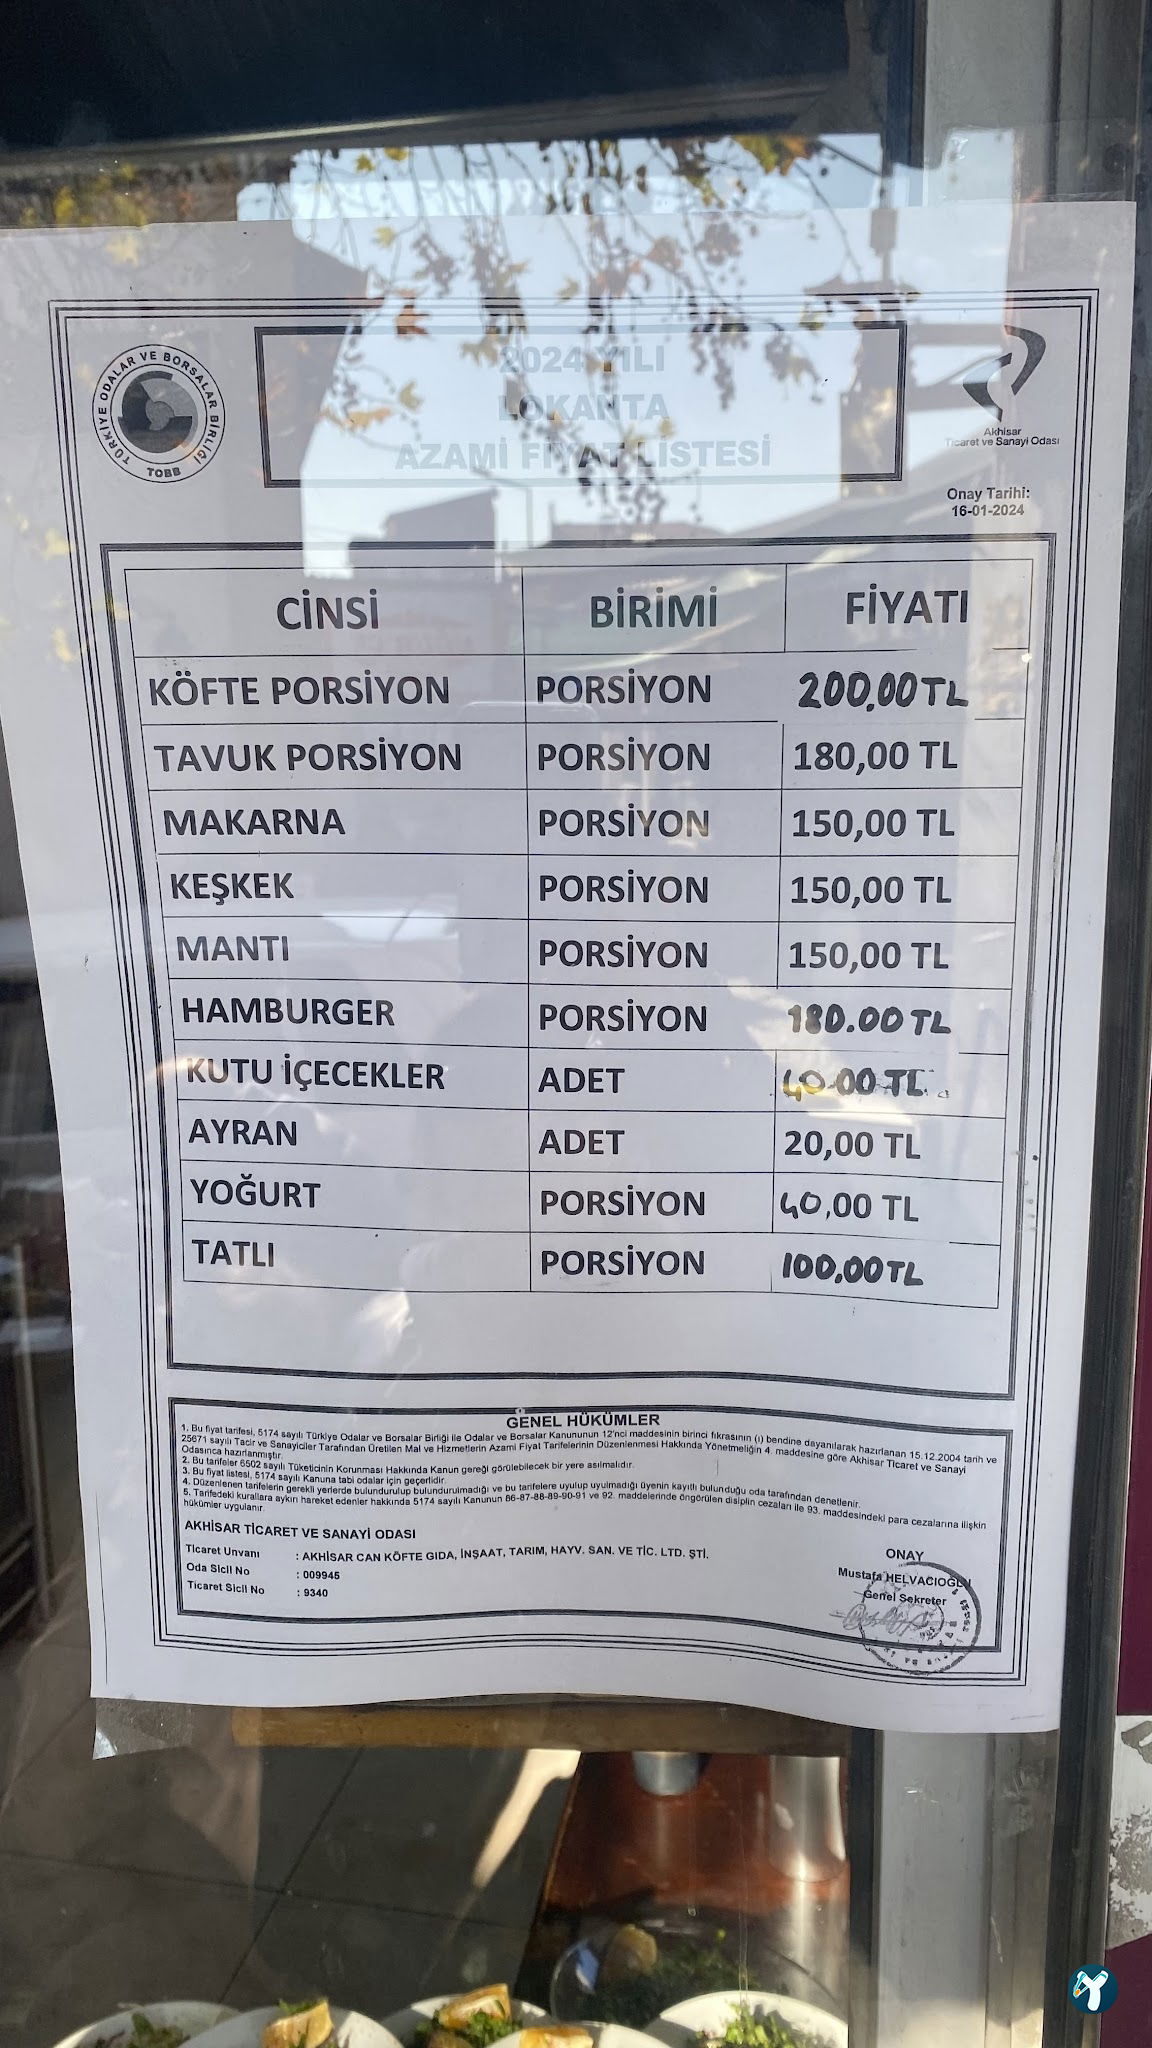 TÜRKİYE ODALAR VE BORSALAR BİRLİĞİ
TOBB
2024 YILI
LOKANTA
AZAMİ FİYAT LİSTESİ
Akhisar
Ticaret ve Sanayi Odası
Onay Tarihi:
16-01-2024
CİNSİ BİRİMİ FİYATI
KÖFTE PORSİYON PORSİYON 200,00 TL
TAVUK PORSİYON PORSİYON 180,00 TL
MAKARNA PORSİYON 150,00 TL
KEŞKEK PORSİYON 150,00 TL
MANTI PORSİYON 150,00 TL
HAMBURGER PORSİYON 180.00 TL
KUTU İÇECEKLER ADET 40.00 TL
AYRAN ADET 20,00 TL
YOĞURT PORSİYON 40,00 TL
TATLI PORSİYON 100,00 TL
GENEL HÜKÜMLER
1. Bu fiyat tarifesi, 5174 sayılı Türkiye Odalar ve Borsalar Birliği ile Odalar ve Borsalar Kanununun 12'nci maddesinin birinci fıkrasının (ı) bendine dayanılarak hazırlanan 15.12.2004 tarih ve
25671 sayılı Tacir ve Sanayiciler Tarafından Üretilen Mal ve Hizmetlerin Azami Fiyat Tarifelerinin Düzenlenmesi Hakkında Yönetmeliğin 4. maddesine göre Akhisar Ticaret ve Sanayi
Odasınca hazırlanmıştır.
2. Bu tarifeler 6502 sayılı Tüketicinin Korunması Hakkında Kanun gereği görülebilecek bir yere asılmalıdır.
3. Bu fiyat listesi, 5174 sayılı Kanuna tabi odalar için geçerlidir.
4. Düzenlenen tarifelerin gerekli yerlerde bulundurulup bulundurulmadığı ve bu tarifelere uyulup uyulmadığı üyenin kayıtlı bulunduğu oda tarafından denetlenir.
5. Tarifedeki kurallara aykırı hareket edenler hakkında 5174 sayılı Kanunun 86-87-88-89-90-91 ve 92. maddelerinde öngörülen disiplin cezaları ile 93. maddesindeki para cezalarına ilişkin
hükümler uygulanır.
AKHİSAR TİCARET VE SANAYİ ODASI
Ticaret Unvanı : AKHİSAR CAN KÖFTE GIDA, İNŞAAT, TARIM, HAYV. SAN. VE TİC. LTD. ŞTİ.
Oda Sicil No : 009945
Ticaret Sicil No : 9340
ONAY
Mustafa HELVACIOĞLU
Genel Sekreter